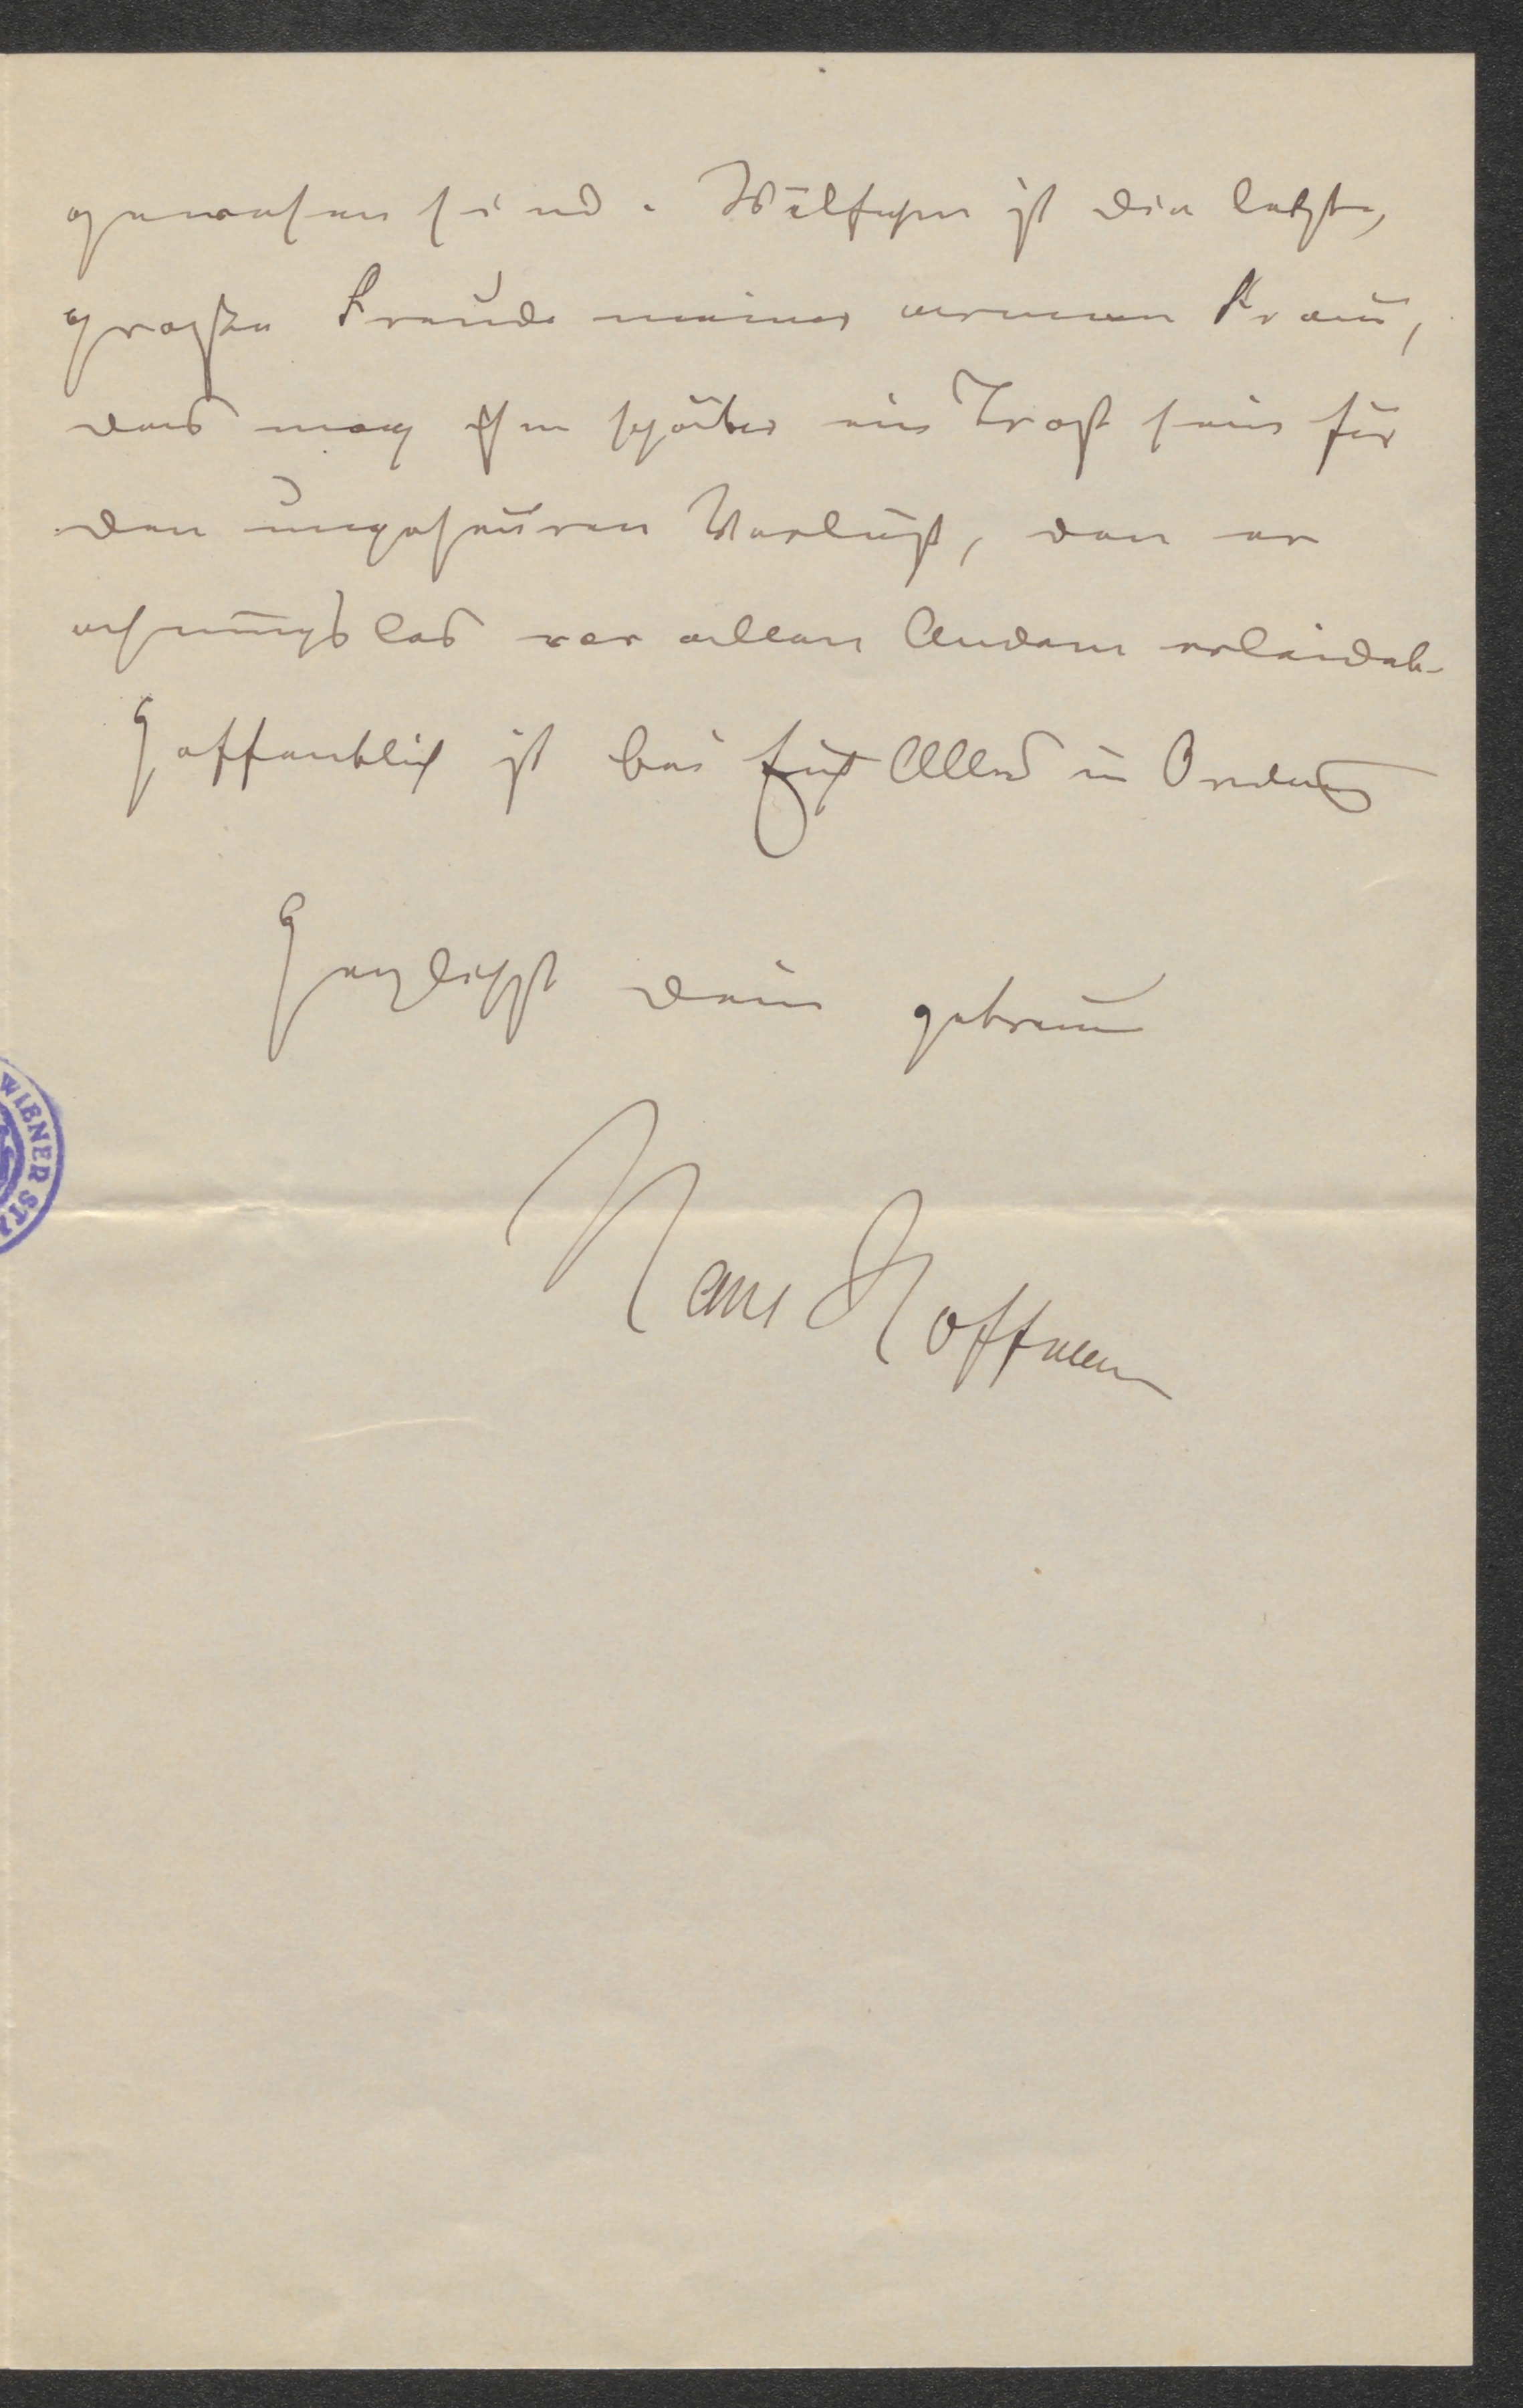 gewesen sind. Wölfchen ist die letzte,
große Freude meiner armen Frau,
das mag ihm später ein Trost sein für
den ungeheuren Verlust, den er
ahnungslos vor allen Andern erleidet.
Hoffentlich ist bei Euch Alles in Ordnung
Herzlichst dein getreuer
Hans Hoffmann
WIENER STA